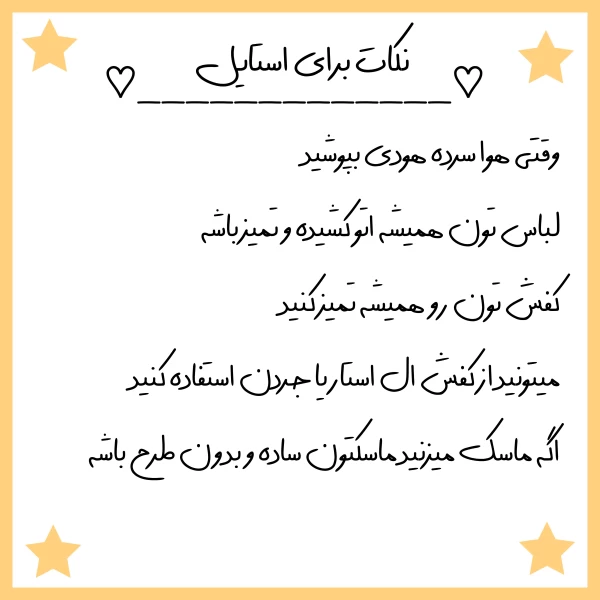 نکات برای استایل
♡_____________♡
وقتی هوا سرده هودی بپوشید
لباس تون همیشه اتو کشیده و تمیز باشه
کفش تون رو همیشه تمیز کنید
میتونید از کفش ال استار یا جردن استفاده کنید
اگه ماسک میزنید ماسکتون ساده و بدون طرح باشه